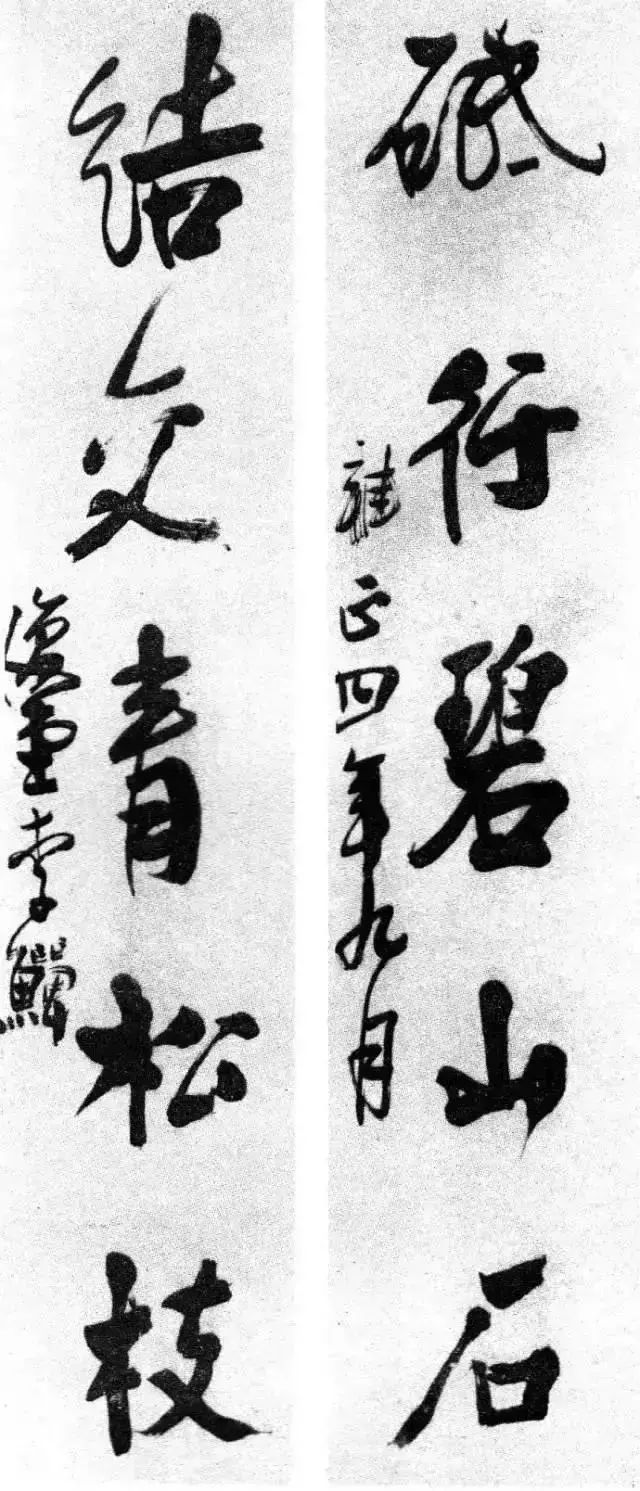 砥行碧山石
雍正四年九月
結交青松枝
復堂李鱓